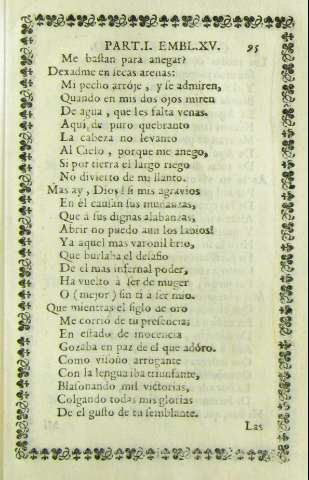 PART.I. EMBL.XV. 95
Me bastan para anegar?
Dexadme en secas arenas:
Mi pecho arroje, y se admiren,
Quando en mis dos ojos miren
De agua, que les falta venas.
Aqui, de puro quebranto
La cabeza no levanto
Al Cielo, porque me anego,
Si por tierra el largo riego
No divierto de mi llanto.
Mas ay, Dios! si mis agravios
En él causan sus mudanzas,
Que à sus dignas alabanzas,
Abrir no puedo aun los labios!
Ya aquel mas varonil brio,
Que burlaba el desafio
De el mas infernal poder,
Ha vuelto a ser de muger
O (mejor) sin ti a ser mio.
Que mientras el siglo de oro
Me corriò de tu presencia;
En estado de inocencia
Gozaba en paz de el que adòro.
Como visoño arrogante
Con la lengua iba triunfante,
Blasonando mil victorias,
Colgando todas mis glorias
De el gusto de tu semblante.
Las